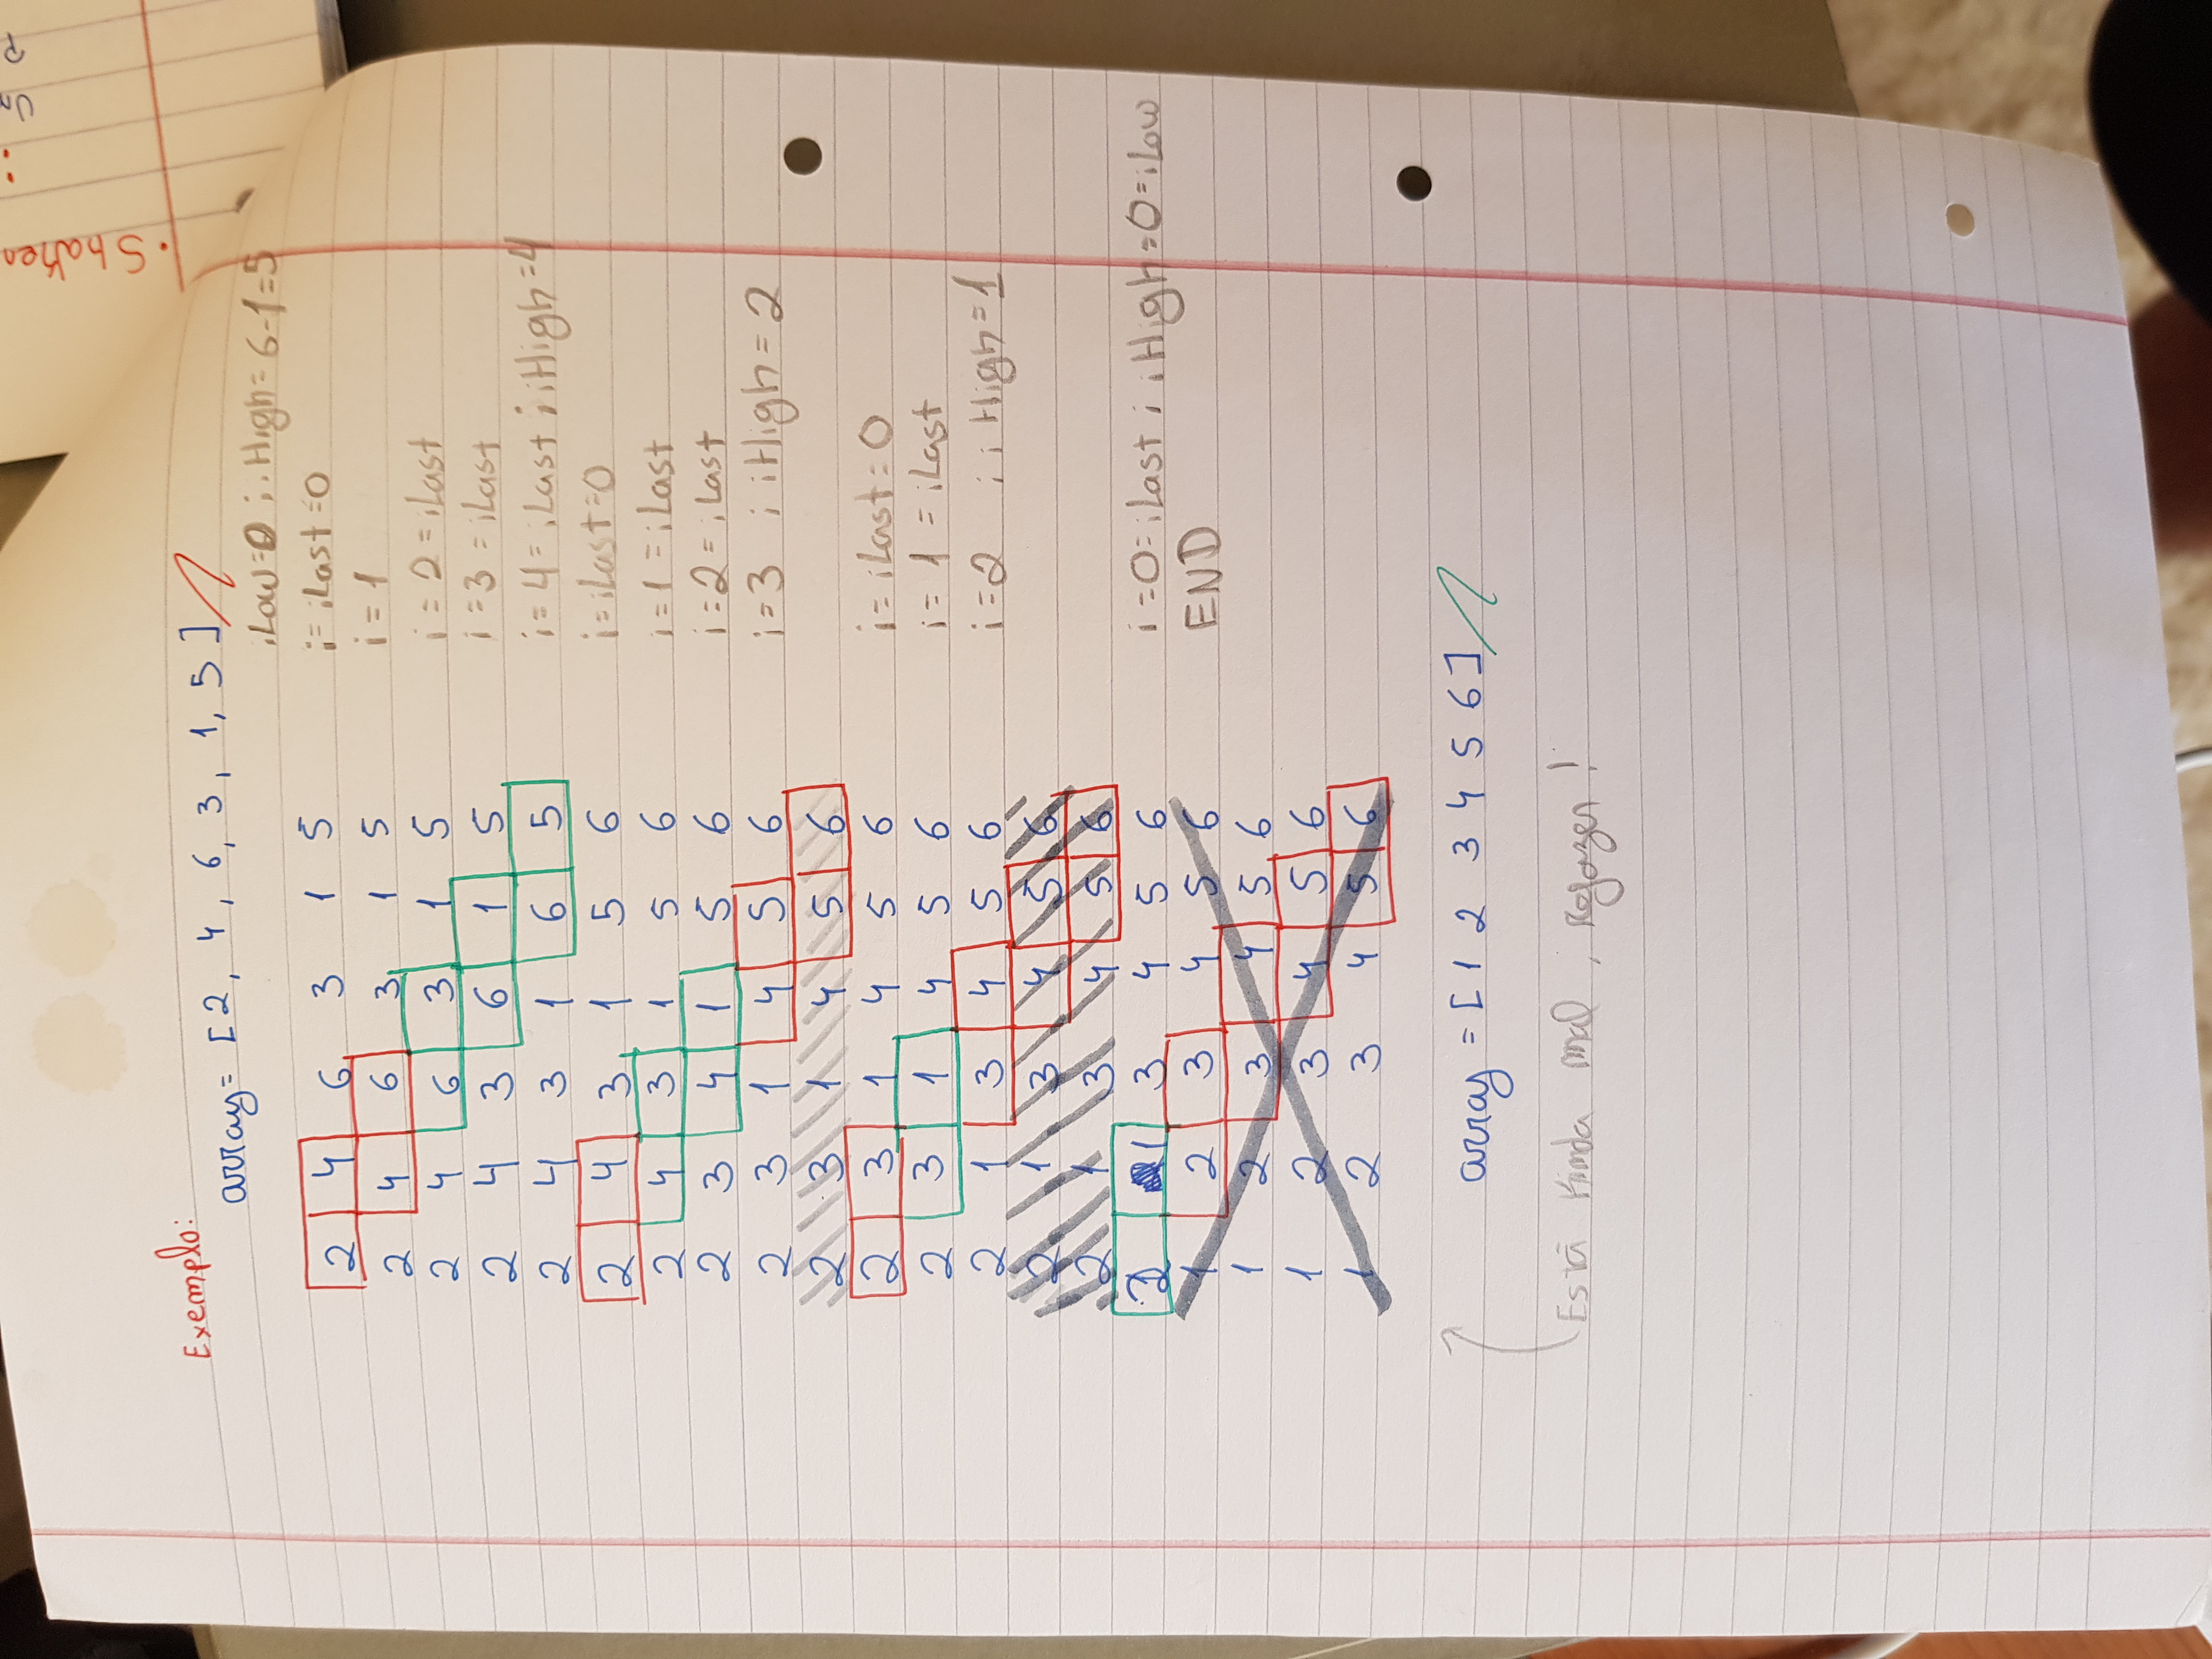 Exemplo:
array = [2, 4, 6, 3, 1, 5]
iLow=0 ; iHigh = 6-1=5
2 4 6 3 1 5 i = iLast = 0
2 4 6 3 1 5 i = 1
2 4 6 3 1 5 i = 2 = iLast
2 4 3 6 1 5 i = 3 = iLast
2 4 3 1 6 5 i = 4 = iLast ; iHigh = 4
2 4 3 1 5 6 i = iLast = 0
2 4 3 1 5 6 i = 1 = iLast
2 3 4 1 5 6 i = 2 = iLast
2 3 1 4 5 6 i = 3 ; iHigh = 2
2 3 1 4 5 6
2 3 1 4 5 6 i = iLast = 0
2 3 1 4 5 6 i = 1 = iLast
2 1 3 4 5 6 i = 2 ; iHigh = 1
2 1 3 4 5 6
2 1 3 4 5 6
2 1 3 4 5 6 i = 0 = iLast ; iHigh = 0 = iLow
1 2 3 4 5 6 END
1 2 3 4 5 6
1 2 3 4 5 6
1 2 3 4 5 6
array = [1 2 3 4 5 6]
Está Kinda mal, Refazer!
. Shaker